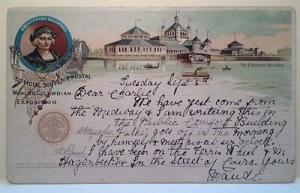 CHRISTOPHER COLUMBUS
THE FISHERIES BUILDING
OFFICIAL SOUVENIR POSTAL
WORLD'S COLUMBIAN
EXPOSITION
Tuesday Sept 5th
Dear Charlie
We have just come from
the Midway & I am writing this in
the Public Comfort Building
Father goes off in the morning
by himself
I have been on the Ferris Wheel &
Hagenbecks & in the Street of Cairo. Yours
Maud E